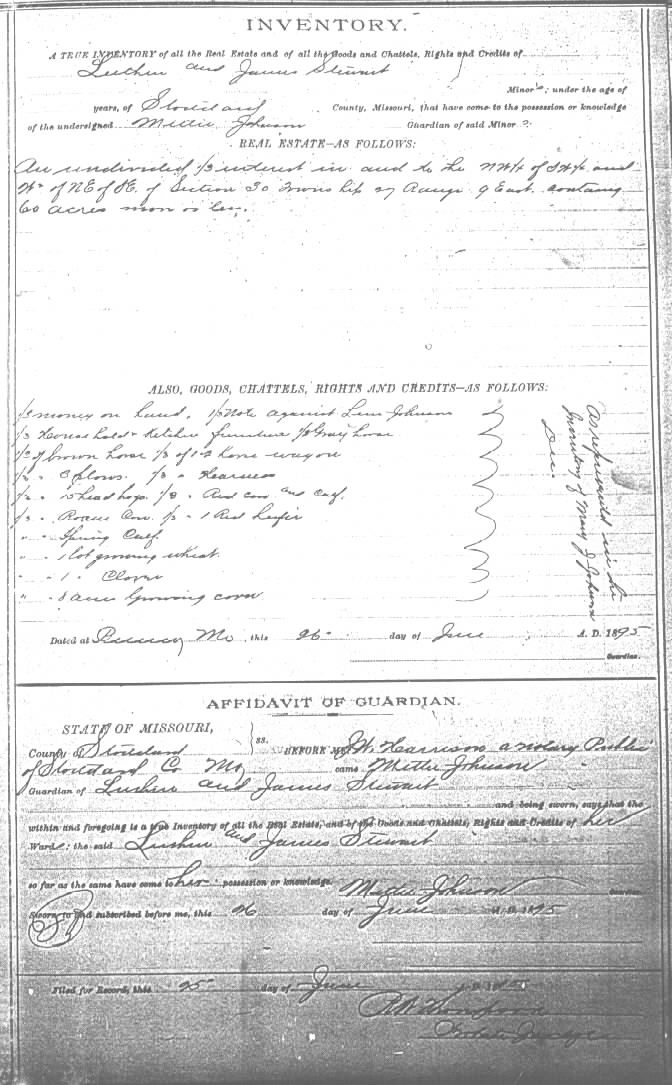 INVENTORY.
A TRUE INVENTORY of all the Real Estate and of all the Goods and Chattels, Rights and Credits of
Luther and James Stewart
Minors; under the age of
years, of Stoddard County, Missouri, that have come to the possession or knowledge
of the undersigned Mettie Johnson Guardian of said Minors
REAL ESTATE—AS FOLLOWS:
An undivided 1/3 interest in and to the NW¼ of SE¼ and
W½ of NE of SE of Section 30 Township 27 Range 9 East containing
60 acres more or less.
ALSO, GOODS, CHATTELS, RIGHTS AND CREDITS—AS FOLLOWS:
1/3 money on hand, 1/3 Note against Lum Johnson
1/3 Household & Kitchen furniture 1/3 Gray horse
1/3 of brown horse 1/3 of 1-2 horse wagon
1/3 " 3 plows. 1/3 " Harness
1/3 " 15 head hogs. 1/3 " Red cow and calf.
1/3 " Roane Cow. 1/3 " 1 Red heifer
" " Spring Calf
" " 1 lot growing wheat
" " 1 " Clover
" " 8 acres Growing corn
As represented in the
Inventory of Mary J Johnson
Dec.
Dated at Mo this 26 day of June A. D. 1895
Guardian.
AFFIDAVIT OF GUARDIAN.
STATE OF MISSOURI,
ss.
County of Stoddard BEFORE ME, J. W. Harrison a notary Public
of Stoddard Co Mo came Mettie Johnson
Guardian of Luther and James Stewart
and being sworn, says that the
within and foregoing is a true Inventory of all the Real Estate, and of the Goods and Chattels, Rights and Credits of her
Wards; the said Luther and James Stewart
so far as the same have come to her possession or knowledge. Mettie Johnson Guardian
Sworn to and subscribed before me, this 26 day of June A. D. 1895
Filed for Record, this 25 day of June A. D. 1895
Probate Judge